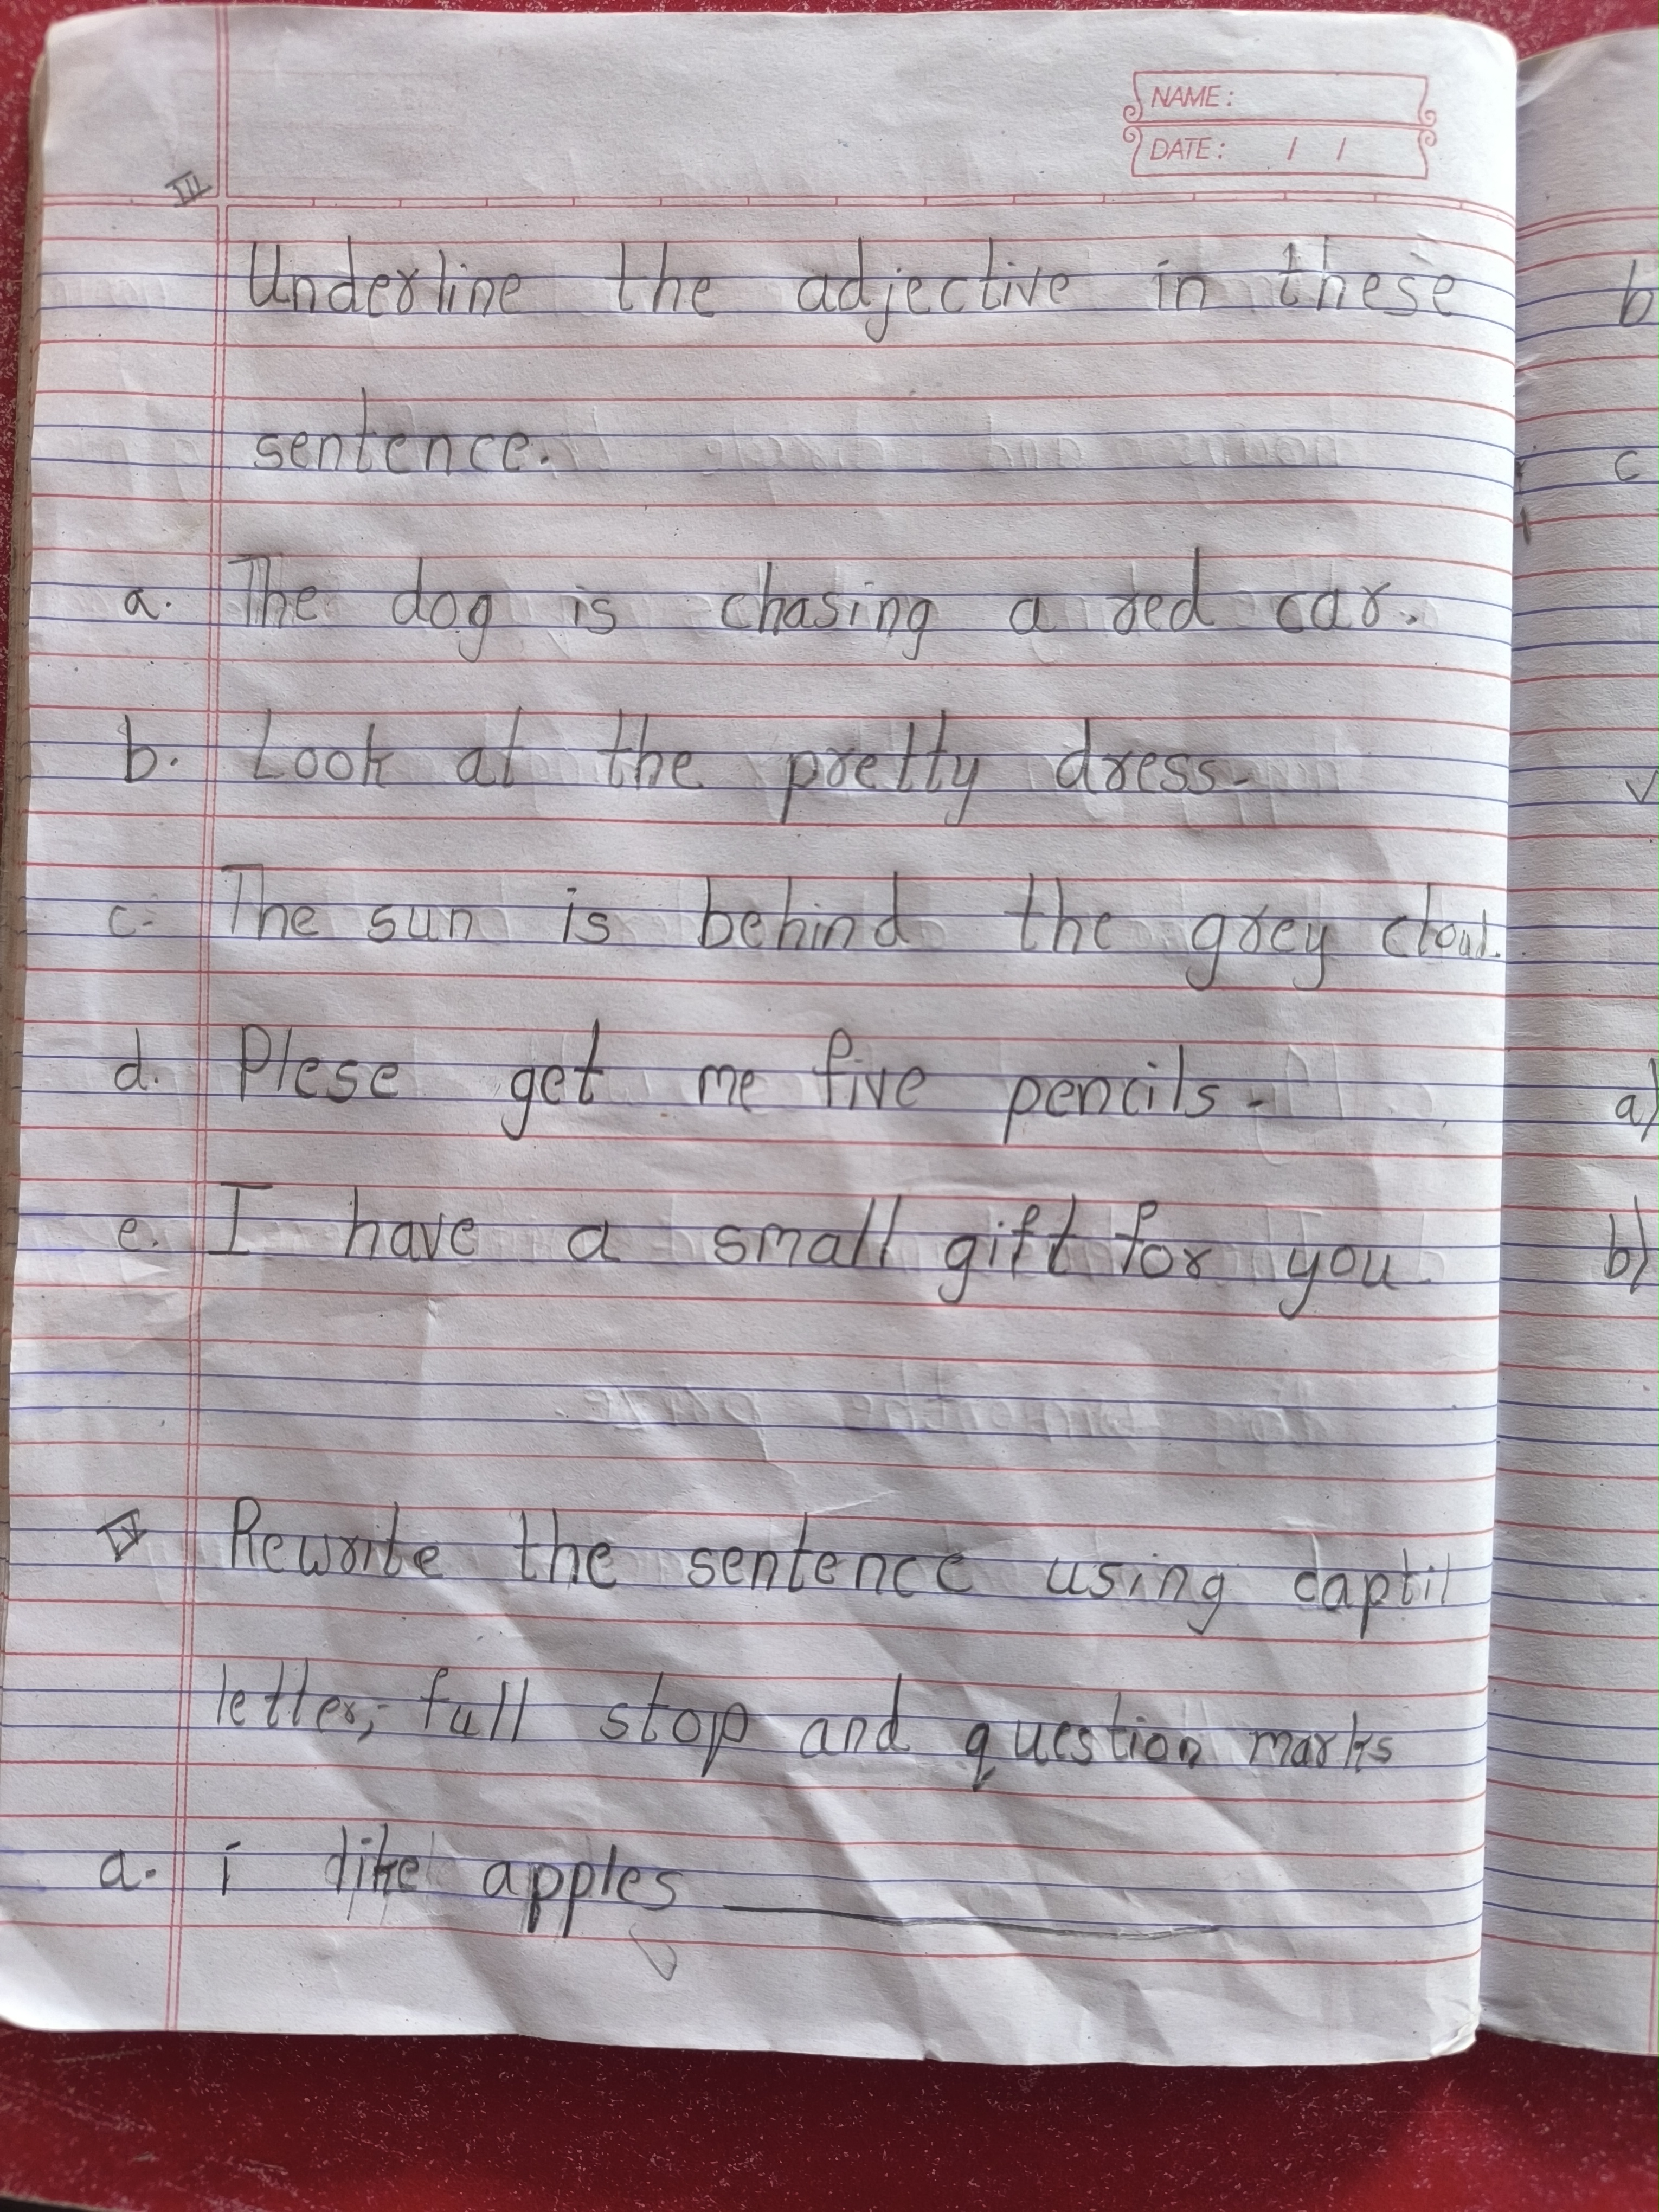 NAME:
DATE: / /
III
Underline the adjective in these
sentence.
a. The dog is chasing a red car.
b. Look at the pretty dress.
c. The sun is behind the grey cloud.
d. Plese get me five pencils.
e. I have a small gift for you
IV Rewrite the sentence using captil
letter, full stop and question marks
a. i like apples
b
c
a)
b)